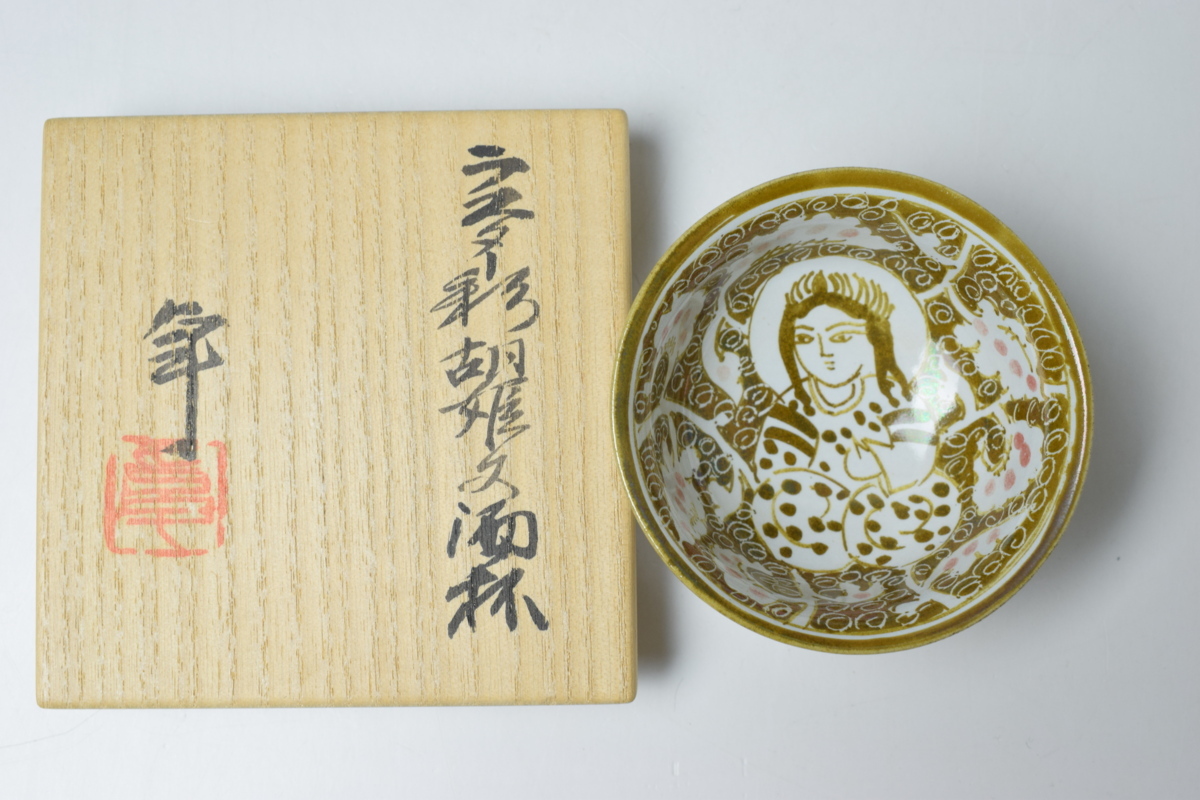 ラスター彩胡姫文酒杯